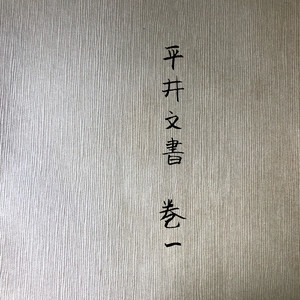 平井文書 巻一